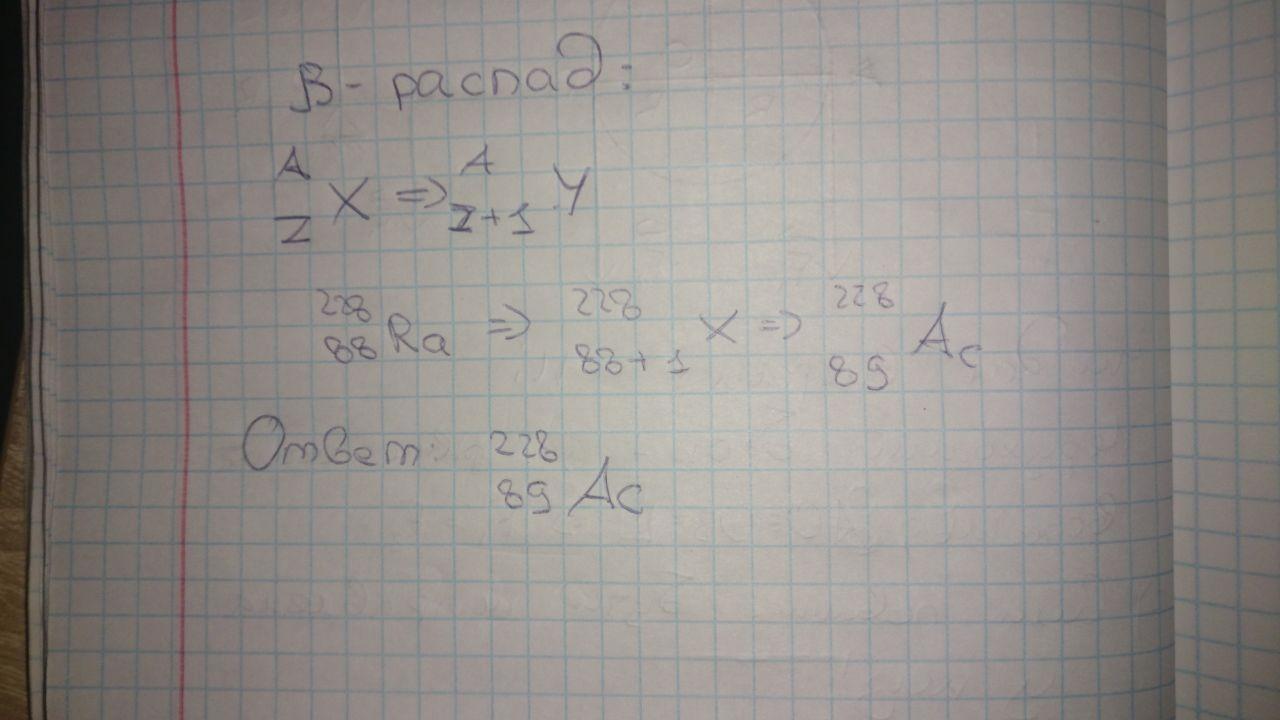 β- распад:
A
Z X => A
Z+1 Y
228
88 Ra => 228
88+1 X => 228
89 Ac
Ответ: 228
89 Ac